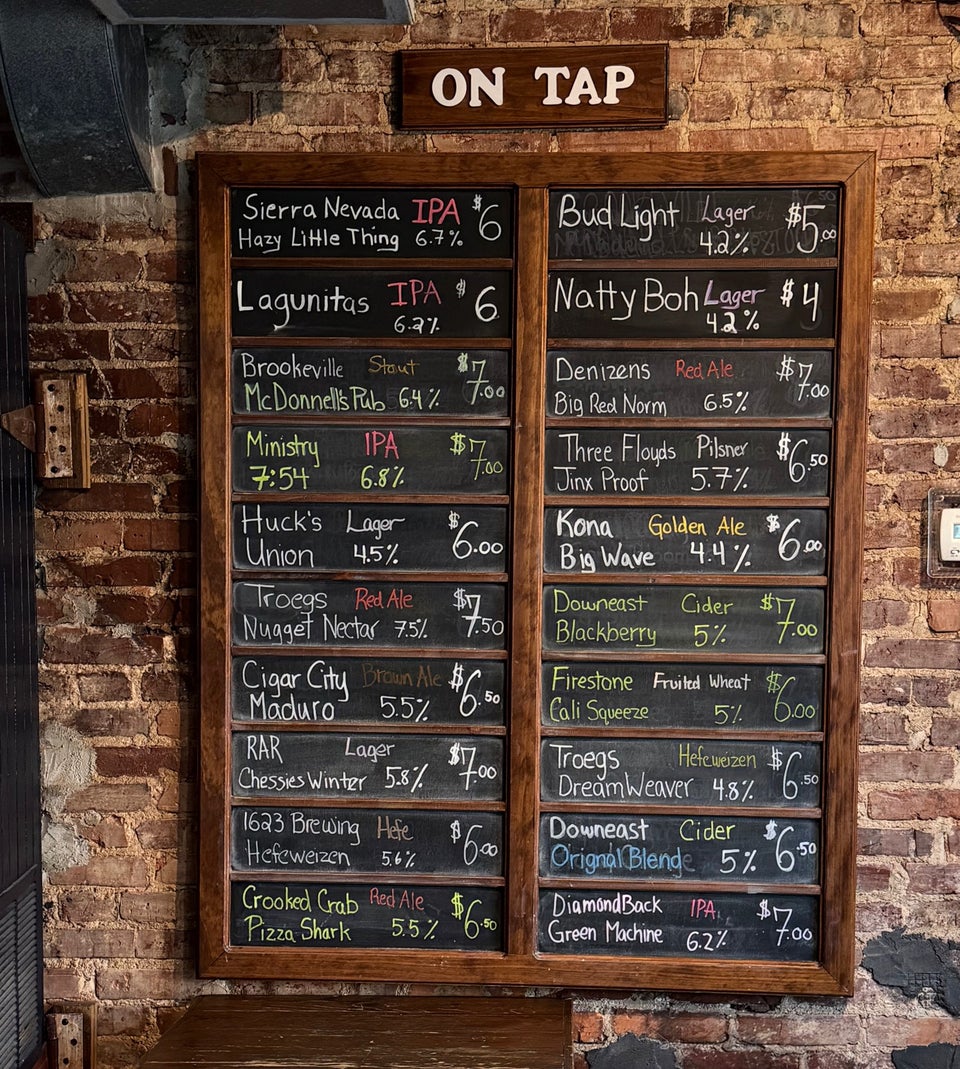 ON TAP
Sierra Nevada IPA $6
Hazy Little Thing 6.7%
Lagunitas IPA $6
6.2%
Brookeville Stout $7.00
McDonnell's Pub 6.4%
Ministry IPA $7.00
7:54 6.8%
Huck's Lager $6.00
Union 4.5%
Troegs Red Ale $7.50
Nugget Nectar 7.5%
Cigar City Brown Ale $6.50
Maduro 5.5%
RAR Lager $7.00
Chessies Winter 5.8%
1623 Brewing Hefe $6.00
Hefeweizen 5.6%
Crooked Crab Red Ale $6.50
Pizza Shark 5.5%
Bud Light Lager $5.00
4.2%
Natty Boh Lager $4
4.2%
Denizens Red Ale $7.00
Big Red Norm 6.5%
Three Floyds Pilsner $6.50
Jinx Proof 5.7%
Kona Golden Ale $6.00
Big Wave 4.4%
Downeast Cider $7.00
Blackberry 5%
Firestone Fruited Wheat $6.00
Cali Squeeze 5%
Troegs Hefeweizen $6.50
DreamWeaver 4.8%
Downeast Cider $6.50
Orignal Blend 5%
DiamondBack IPA $7.00
Green Machine 6.2%